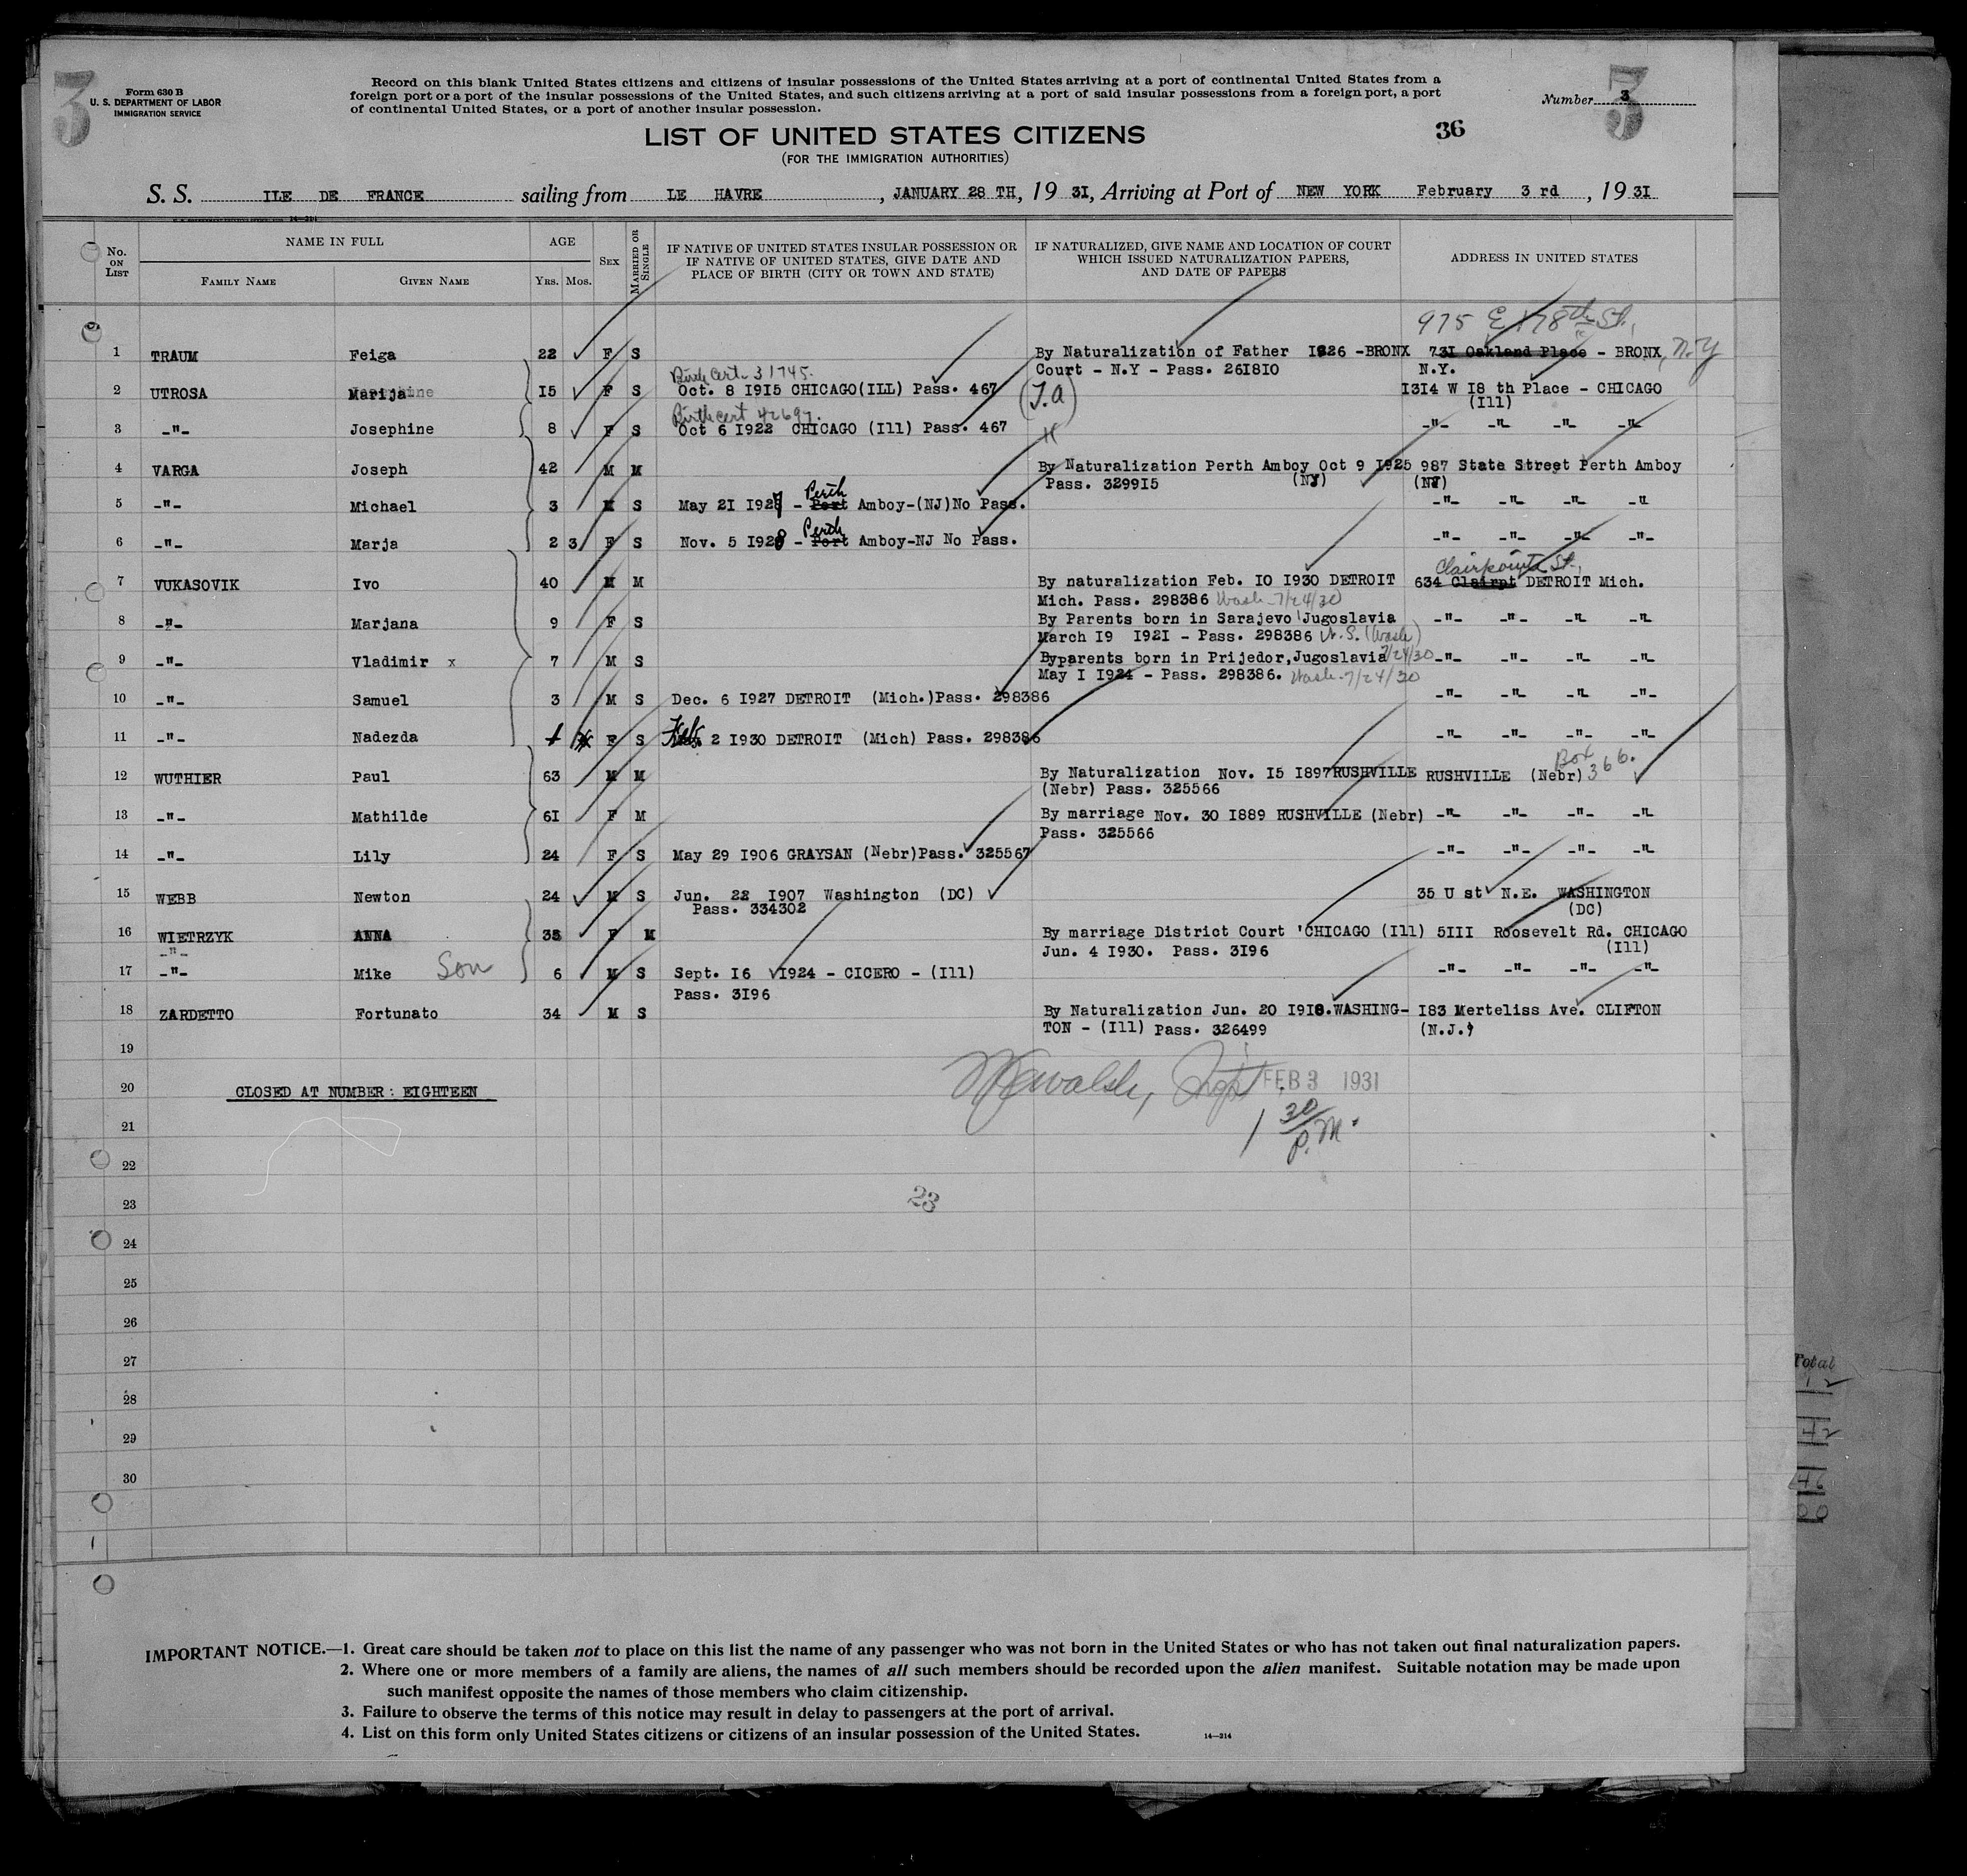 3
Form 630 B
U. S. DEPARTMENT OF LABOR
IMMIGRATION SERVICE
Record on this blank United States citizens and citizens of insular possessions of the United States arriving at a port of continental United States from a
foreign port or a port of the insular possessions of the United States, and such citizens arriving at a port of said insular possessions from a foreign port, a port
of continental United States, or a port of another insular possession.
Number 3
3
LIST OF UNITED STATES CITIZENS
36
(FOR THE IMMIGRATION AUTHORITIES)
S. S. ILE DE FRANCE sailing from LE HAVRE, JANUARY 28 TH, 19 3I, Arriving at Port of NEW YORK February 3 rd, 19 3I
No. ON LIST
NAME IN FULL
FAMILY NAME GIVEN NAME
AGE
YRS. MOS.
SEX
MARRIED OR SINGLE
IF NATIVE OF UNITED STATES INSULAR POSSESSION OR
IF NATIVE OF UNITED STATES, GIVE DATE AND
PLACE OF BIRTH (CITY OR TOWN AND STATE)
IF NATURALIZED, GIVE NAME AND LOCATION OF COURT
WHICH ISSUED NATURALIZATION PAPERS,
AND DATE OF PAPERS
ADDRESS IN UNITED STATES
975 E 178th St.,
1 TRAUM Feiga 22 F S By Naturalization of Father I926 -BRONX 73I Oakland Place - BRONX, N.Y
Court - N.Y - Pass. 26I8I0 N.Y.
Birth Cert. 31745.
2 UTROSA Marija I5 F S Oct. 8 I9I5 CHICAGO(ILL) Pass. 467 (J.A) I3I4 W I8 th Place - CHICAGO
(Ill)
Birth cert 42697.
3 -"- Josephine 8 F S Oct 6 I922 CHICAGO (Ill) Pass. 467 " -"- -"- -"- -"-
4 VARGA Joseph 42 M M By Naturalization Perth Amboy Oct 9 I925 987 State Street Perth Amboy
Pass. 3299I5 (NJ) (NJ)
Perth
5 -"- Michael 3 M S May 2I I927 - Port Amboy-(NJ)No Pass. -"- -"- -"- -"-
Perth
6 -"- Marja 2 3 F S Nov. 5 I928 - Port Amboy-NJ No Pass. -"- -"- -"- -"-
Clairpointe St.,
7 VUKASOVIK Ivo 40 M M By naturalization Feb. I0 I930 DETROIT 634 Clairpt DETROIT Mich.
Mich. Pass. 298386 Wash-7/24/30
8 -"- Marjana 9 F S By Parents born in Sarajevo Jugoslavia -"- -"- -"- -"-
March I9 I92I - Pass. 298386 (Wash)
9 -"- Vladimir x 7 M S Byparents born in Prijedor,Jugoslavia 7/24/30 -"- -"- -"- -"-
May I I924 - Pass. 298386. Wash-7/24/30
10 -"- Samuel 3 M S Dec. 6 I927 DETROIT (Mich.)Pass. 298386 -"- -"- -"- -"-
11 -"- Nadezda F S Feb. 2 I930 DETROIT (Mich) Pass. 298386 -"- -"- -"- -"-
Box
12 WUTHIER Paul 63 M M By Naturalization Nov. I5 I897RUSHVILLE RUSHVILLE (Nebr) 366.
(Nebr) Pass. 325566
13 -"- Mathilde 6I F M By marriage Nov. 30 I889 RUSHVILLE (Nebr) -"- -"- -"- -"-
Pass. 325566
14 -"- Lily 24 F S May 29 I906 GRAYSAN (Nebr)Pass. 325567 -"- -"- -"- -"-
15 WEBB Newton 24 M S Jun. 22 I907 Washington (DC) 35 U st N.E. WASHINGTON
Pass. 334302 (DC)
16 WIETRZYK ANNA 33 F M By marriage District Court 'CHICAGO (Ill) 5III Roosevelt Rd. CHICAGO
-"- Jun. 4 I930. Pass. 3I96 (Ill)
17 -"- Mike Son 6 M S Sept. I6 I924 - CICERO - (Ill) -"- -"- -"- -"-
Pass. 3I96
18 ZARDETTO Fortunato 34 M S By Naturalization Jun. 20 I9I8.WASHING- I83 Merteliss Ave. CLIFTON
TON - (Ill) Pass. 326499 (N.J.)
19
20 CLOSED AT NUMBER: EIGHTEEN FEB 3 1931
1 30/P.M.
21
22
23
23
24
25
26
27
28
29
30
Total
12
42
46
00
IMPORTANT NOTICE.—1. Great care should be taken not to place on this list the name of any passenger who was not born in the United States or who has not taken out final naturalization papers.
2. Where one or more members of a family are aliens, the names of all such members should be recorded upon the alien manifest. Suitable notation may be made upon
such manifest opposite the names of those members who claim citizenship.
3. Failure to observe the terms of this notice may result in delay to passengers at the port of arrival.
4. List on this form only United States citizens or citizens of an insular possession of the United States.
14—214